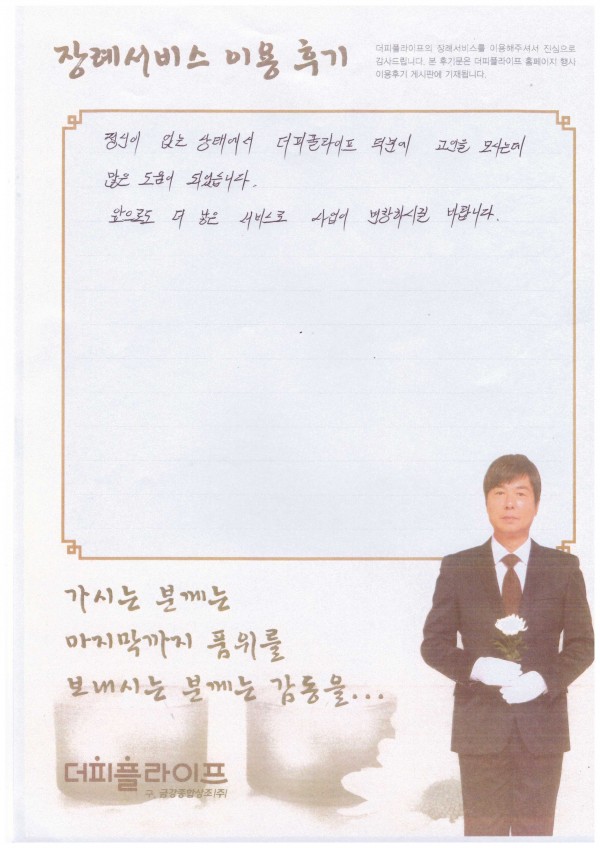 장례서비스 이용 후기
더피플라이프의 장례서비스를 이용해주셔서 진심으로
감사드립니다. 본 후기문은 더피플라이프 홈페이지 행사
이용후기 게시판에 기재됩니다.
정신이 없는 상태에서 더피플라이프 덕분에 고인을 모시는데
많은 도움이 되었습니다.
앞으로도 더 낳은 서비스로 사업이 번창하시길 바랍니다.
가시는 분께는
마지막까지 품위를
보내시는 분께는 감동을...
더피플라이프
구. 금강종합상조(주)